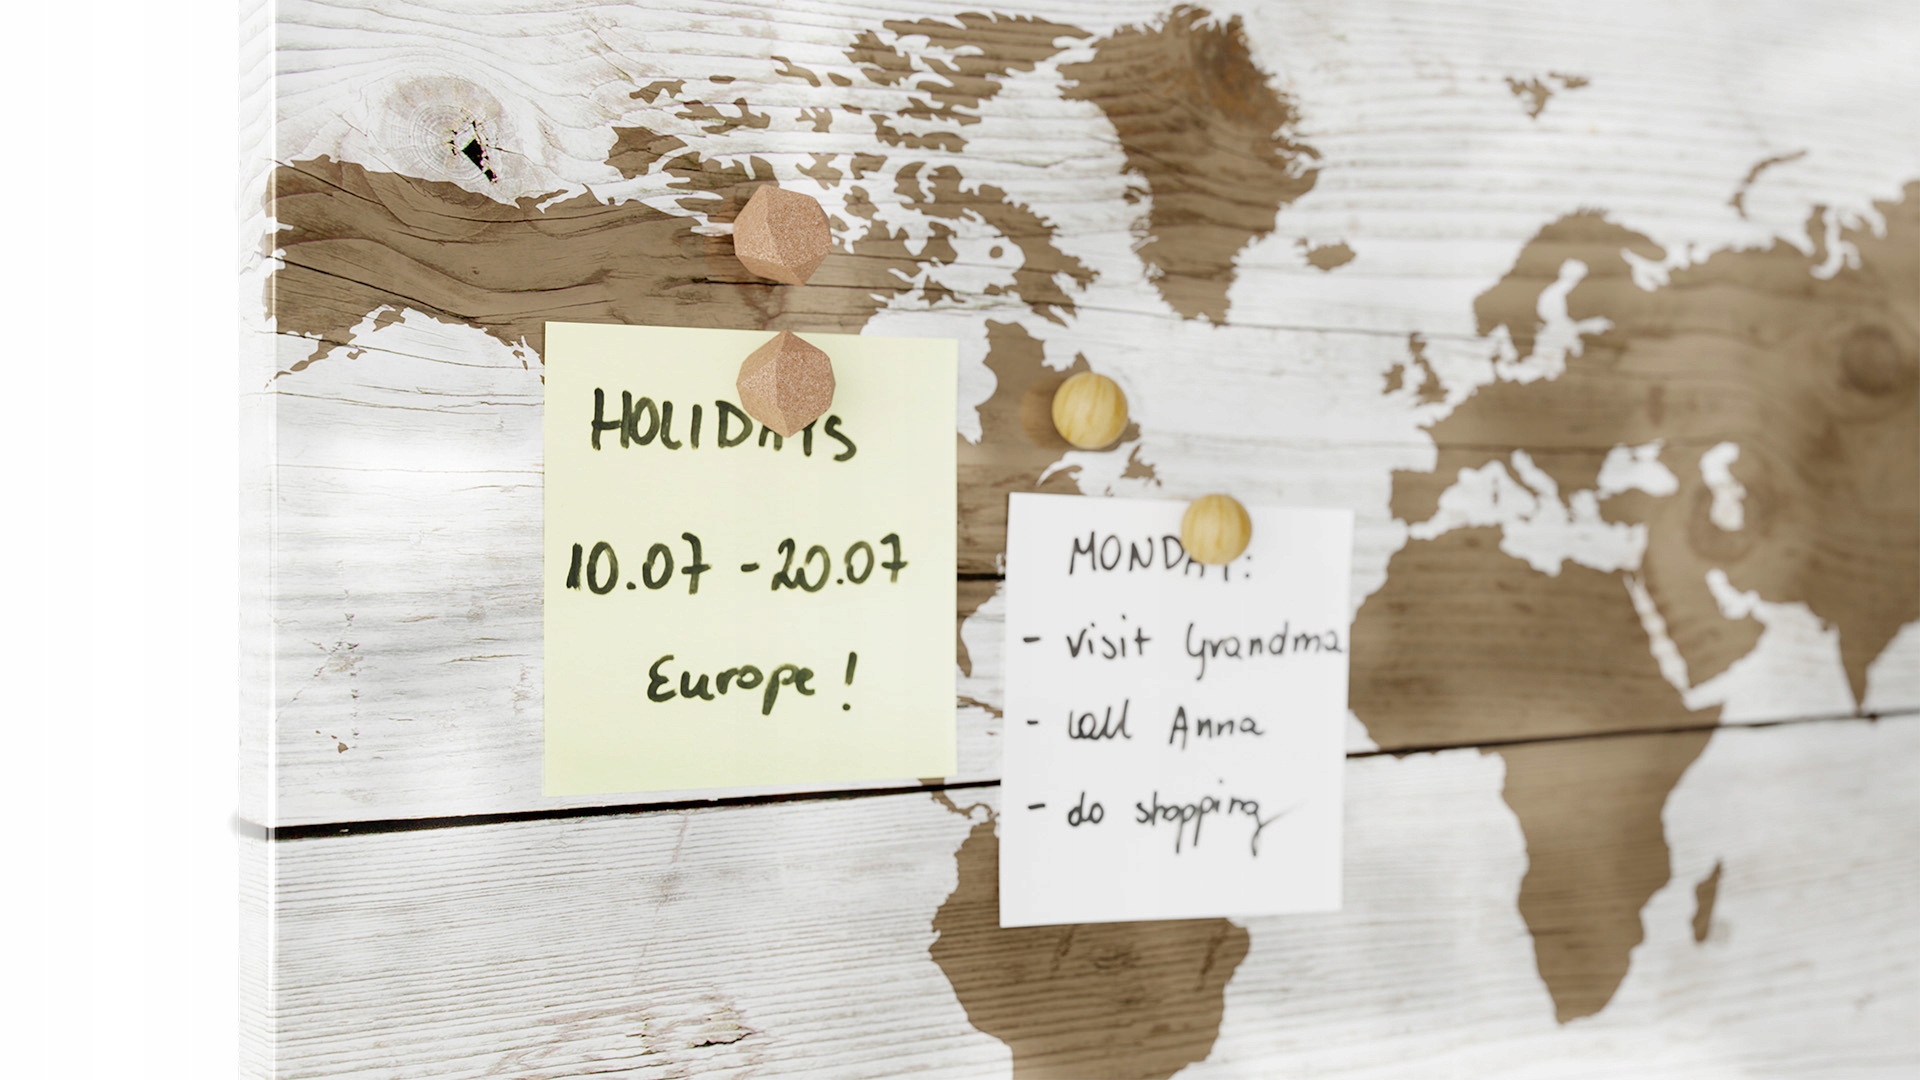 HOLIDAYS
10.07 - 20.07
Europe!
MONDAY:
- visit Grandma
- call Anna
- do shopping